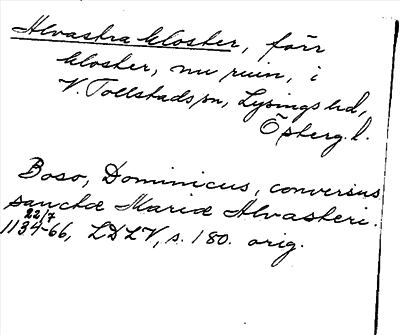 Alvastra kloster, förr
kloster, nu ruin, i
V. Tollstads sn, Lysings hd,
Öster g. l.
Boso, Dominicus, conversus
sanctæ Mariæ Alvastri.
22/7
1134-66, LDLV, s. 180. orig.